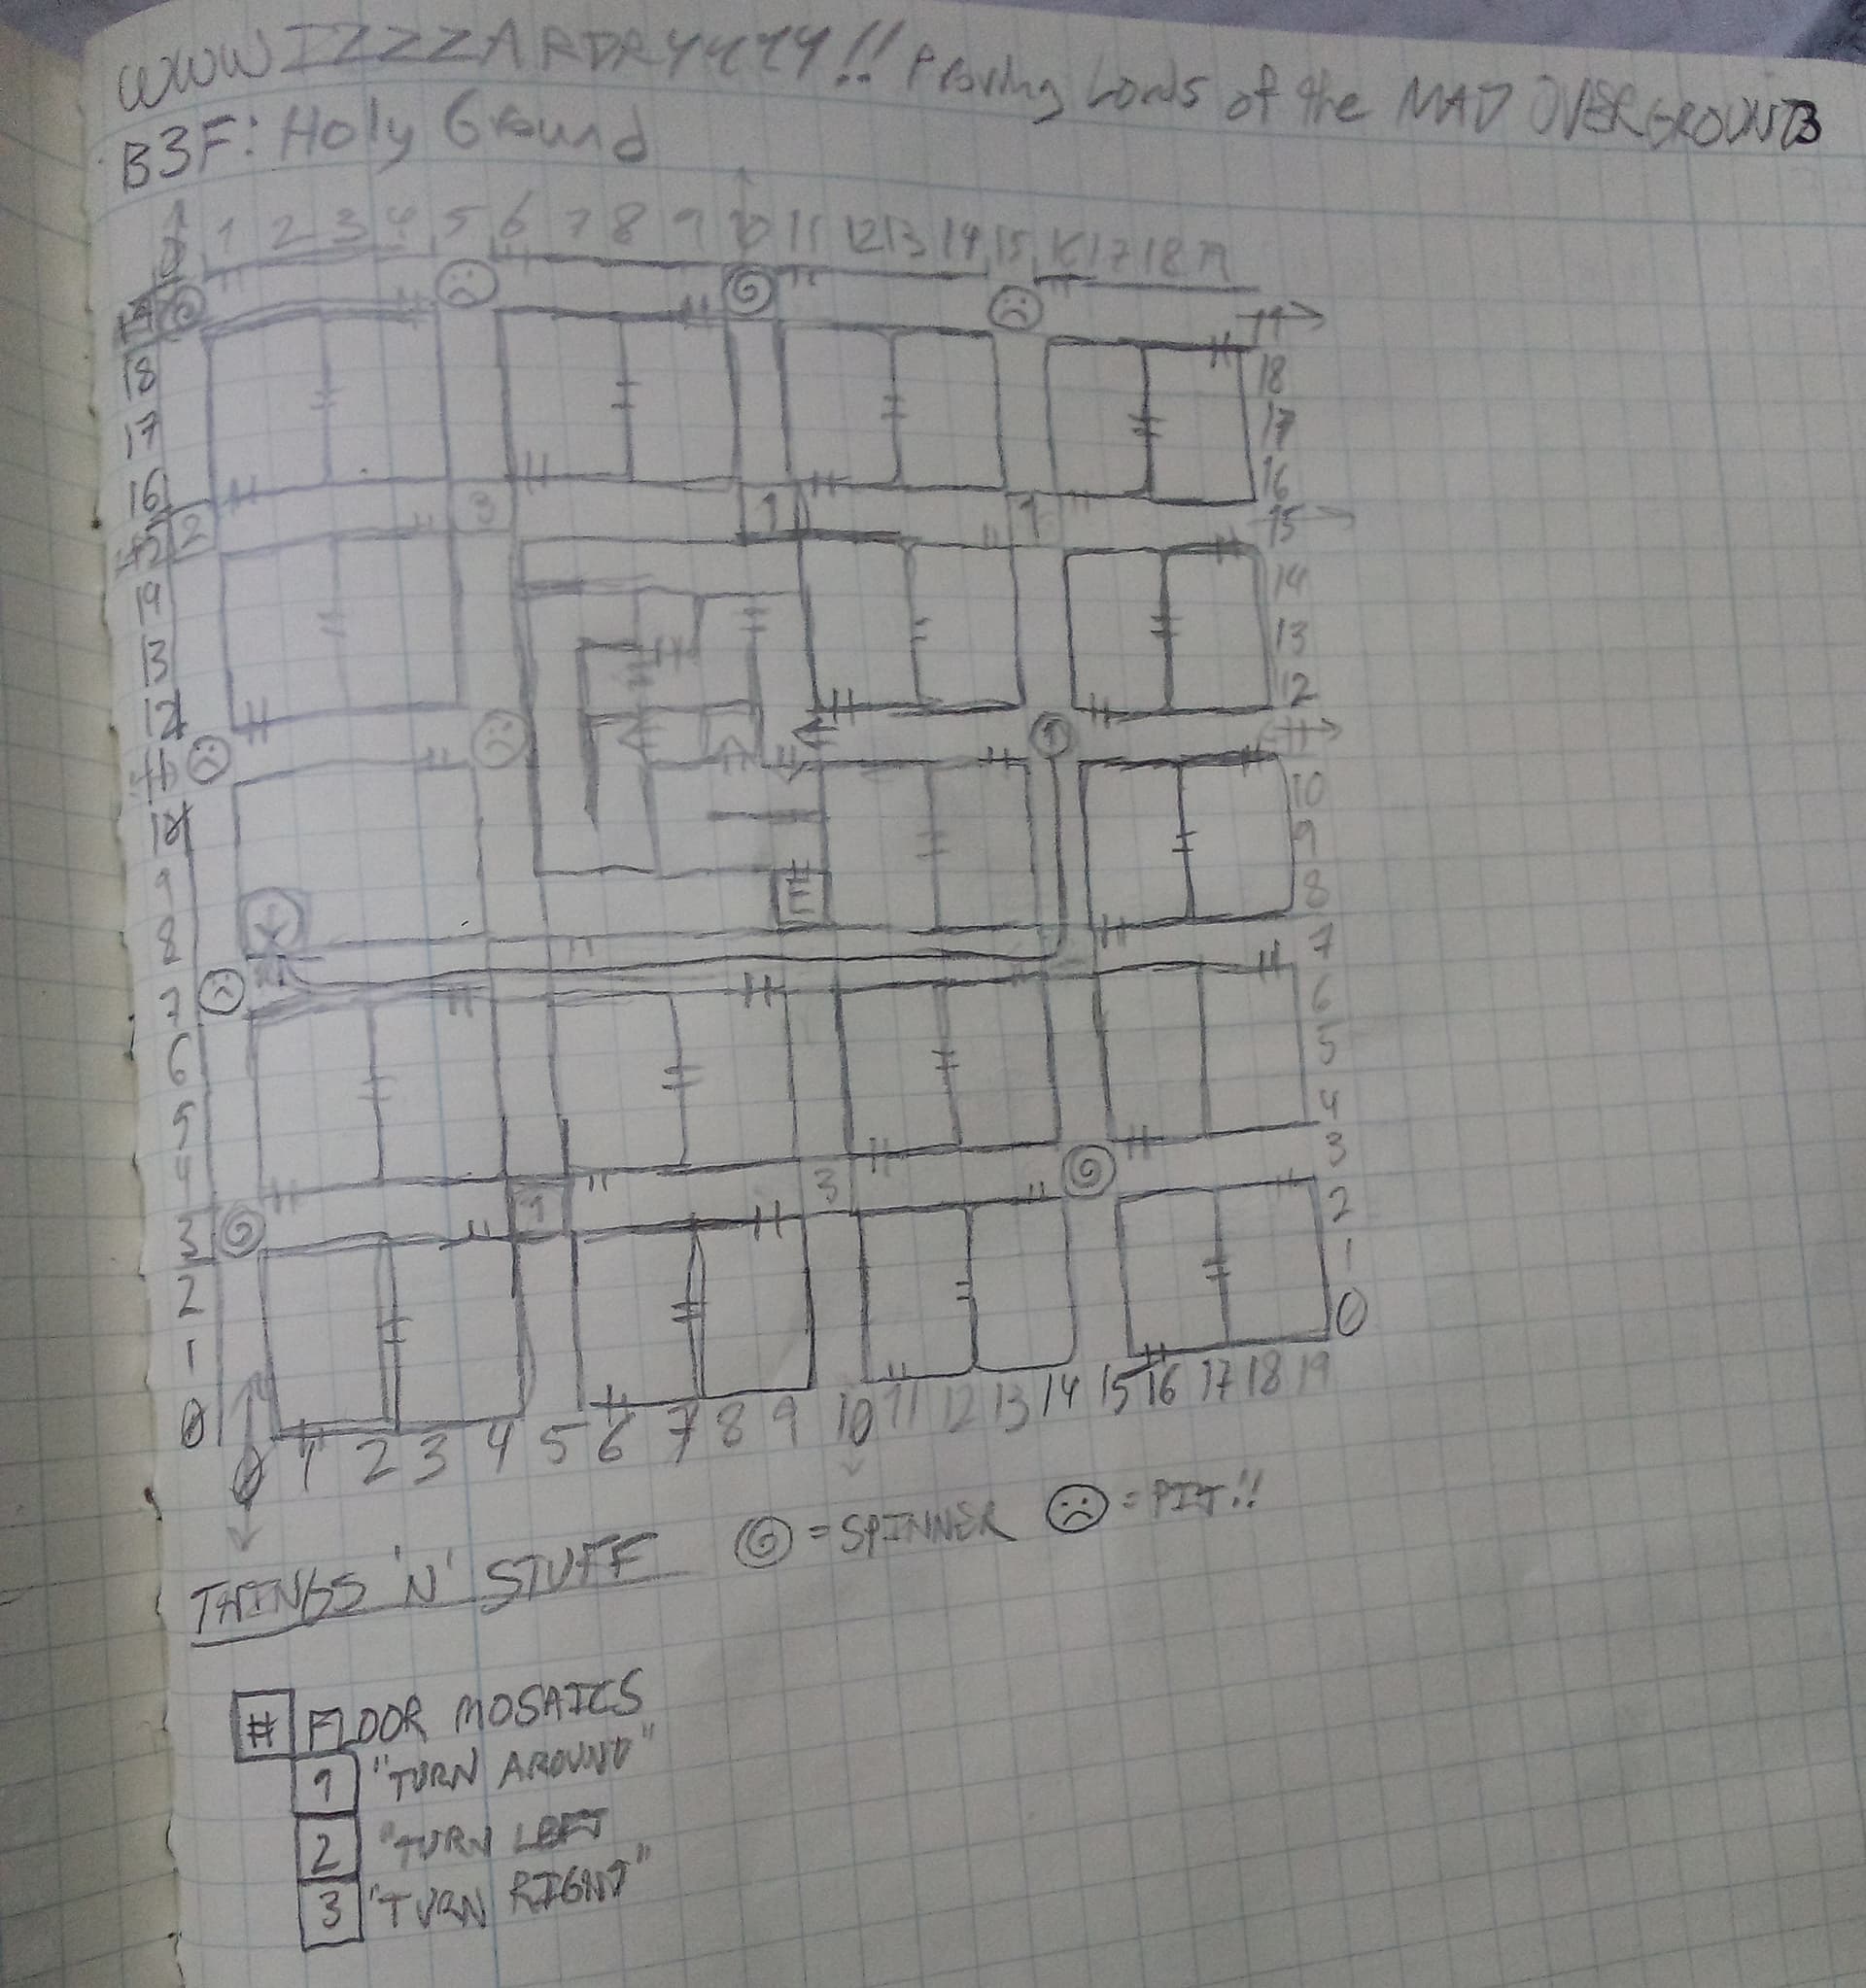 WWWIZZZARDRYYYYY!! Proving Lords of the MAD OVERGROUND
B3F: Holy Ground
0 1 2 3 4 5 6 7 8 9 10 11 12 13 14 15 16 17 18 19
19 19
18 18
17 17
16 16
3 1 1
15 2 15
14 14
13 13
12 12
11 11
10 10
9 9
8 E 8
7 7
6 6
5 5
4 4
3 1 3 3
2 2
1 1
0 0
0 1 2 3 4 5 6 7 8 9 10 11 12 13 14 15 16 17 18 19
= SPINNER = PIT!!
THINGS 'N' STUFF
# FLOOR MOSAICS
1 "TURN AROUND"
2 "TURN LEFT
3 "TURN RIGHT"